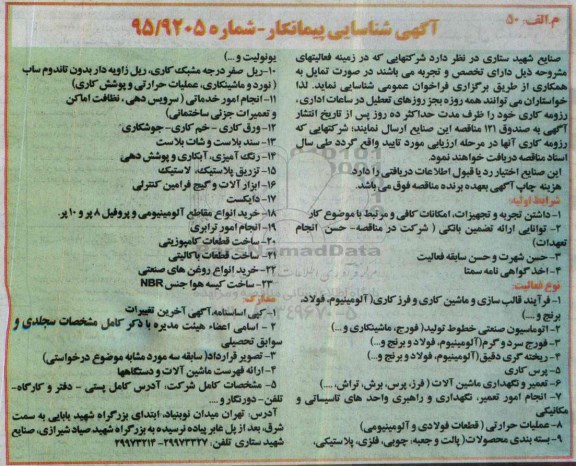 م.الف: ۵۰
آگهی شناسایی پیمانکار-شماره ۹۵/۹۲۰۵
صنایع شهید ستاری در نظر دارد شرکتهایی که در زمینه فعالیتهای
مشروحه ذیل دارای تخصص و تجربه می باشند در صورت تمایل به
همکاری از طریق برگزاری فراخوان عمومی شناسایی نماید. لذا
خواستاران می توانند همه روزه بجز روزهای تعطیل در ساعات اداری،
رزومه کاری خود را ظرف مدت حداکثر ده روز پس از تاریخ انتشار
آگهی به صندوق ۱۳۱ مناقصه این صنایع ارسال نمایند؛ شرکتهایی که
رزومه کاری آنها در مرحله ارزیابی مورد تایید واقع گردد طی سال
اسناد مناقصه دریافت خواهند نمود.
این صنایع اختیار رد یا قبول اطلاعات دریافتی را دارد.
هزینه چاپ آگهی بعهده برنده مناقصه فوق می باشد.
شرایط اولیه:
۱-داشتن تجربه و تجهیزات، امکانات کافی و مرتبط با موضوع کار
۲- توانایی ارائه تضمین بانکی ( شرکت در مناقصه- حسن انجام
تعهدات)
۳- حسن شهرت و حسن سابقه فعالیت
۴- اخذ گواهی نامه سمتا
نوع فعالیت:
۱-فرآیند قالب سازی و ماشین کاری و فرز کاری( آلومینیوم، فولاد،
برنج و ...)
۲-اتوماسیون صنعتی خطوط تولید( فورج، ماشینکاری و ...)
۳-فورج سرد و گرم(آلومینیوم، فولاد و برنج و...)
۴- ریخته گری دقیق(آلومینیوم، فولاد و برنج و...)
۵- پرس کاری
۶- تعمیر و نگهداری ماشین آلات ( فرز، پرس، برش، تراش، ....)
۷- انجام امور تعمیر، نگهداری و راهبری واحد های تاسیساتی و
مکانیکی
۸-عملیات حرارتی ( قطعات فولادی و آلومینیومی)
۹- بسته بندی محصولات( پالت و جعبه، چوبی، فلزی، پلاستیکی،
یونولیت و...)
۱۰-ریل صفر درجه مشبک کاری، ریل زاویه دار بدون تاندوم ساب
( نورد و ماشینکاری، عملیات حرارتی و پوشش کاری)
۱۱- انجام امور خدماتی ( سرویس دهی ، نظافت اماکن
و تعمیرات جزئی ساختمانی)
۱۲- ورق کاری - خم کاری- جوشکاری
۱۳- سند بلاست و شات بلاست
۱۴-رنگ آمیزی، آبکاری و پوشش دهی
۱۵- تزریق پلاستیک، لاستیک
۱۶- ابزار آلات و گیج فرامین کنترلی
۱۷- دایکست
۱۸- خرید انواع مقاطع آلومینیومی و پروفیل ۸ پر و ۱۰ پر.
۱۹-انجام امور ترابری
۲۰-ساخت قطعات کامپوزیتی
۲۱-ساخت قطعات باکالیتی
۲۲-خرید انواع روغن های صنعتی
۲۳- ساخت کیسه هوا جنس NBR
مدارک:
۱-کپی اساسنامه، آگهی آخرین تغییرات
۲- اسامی اعضاء هیئت مدیره با ذکر کامل مشخصات سجلدی و
سوابق تحصیلی
۳- تصویر قرارداد( سابقه سه مورد مشابه موضوع درخواستی)
۴- ارائه فهرست ماشین آلات و دستگاهها
۵- مشخصات کامل شرکت، آدرس کامل پستی - دفتر و کارگاه-
تلفن-دورنگار و ....
آدرس: تهران میدان نوبنیاد، ابتدای بزرگراه شهید بابایی به سمت
شرق، بعد از پل عابر پیاده نرسیده به بزرگراه شهید صیاد شیرازی، صنایع
شهید ستاری تلفن: ۲۹۹۷۳۳۲۷-۲۹۹۷۳۲۱۴
ParsNamadData